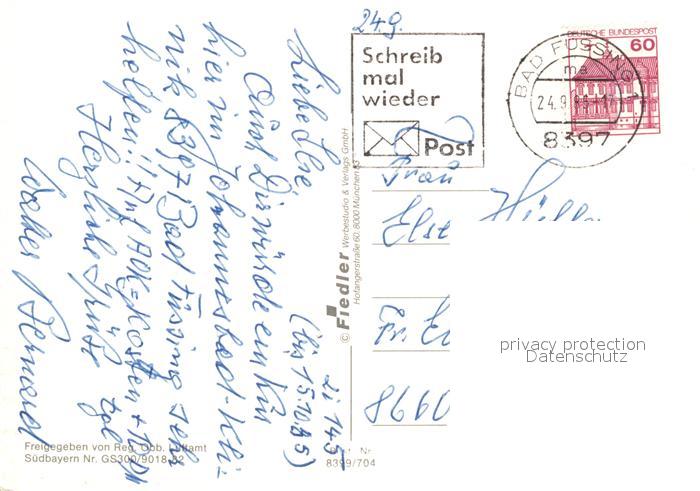 24.9.
Schreib
mal
wieder
Post
DEUTSCHE BUNDESPOST
60
BAD FÜSSING 1
ma
24.9.85
8397
Liebe Else
Auch Dir würde ein Kur
hier im Johannesbad-Kli-
nik 8397 Bad Füssing sehr
helfen!! Auf AOK-Kosten +
Herzliche Grüße
Bernard
(bis 15.10.85)
Zi 145
© Fiedler Werbestudio & Verlags GmbH
Hofangerstraße 60, 8000 München 83
Frau
Else
Fr.
8660
privacy protection
Datenschutz
Freigegeben von Reg. Obb. Luftamt
Südbayern Nr. GS300/9018-82
Nr
8399/704